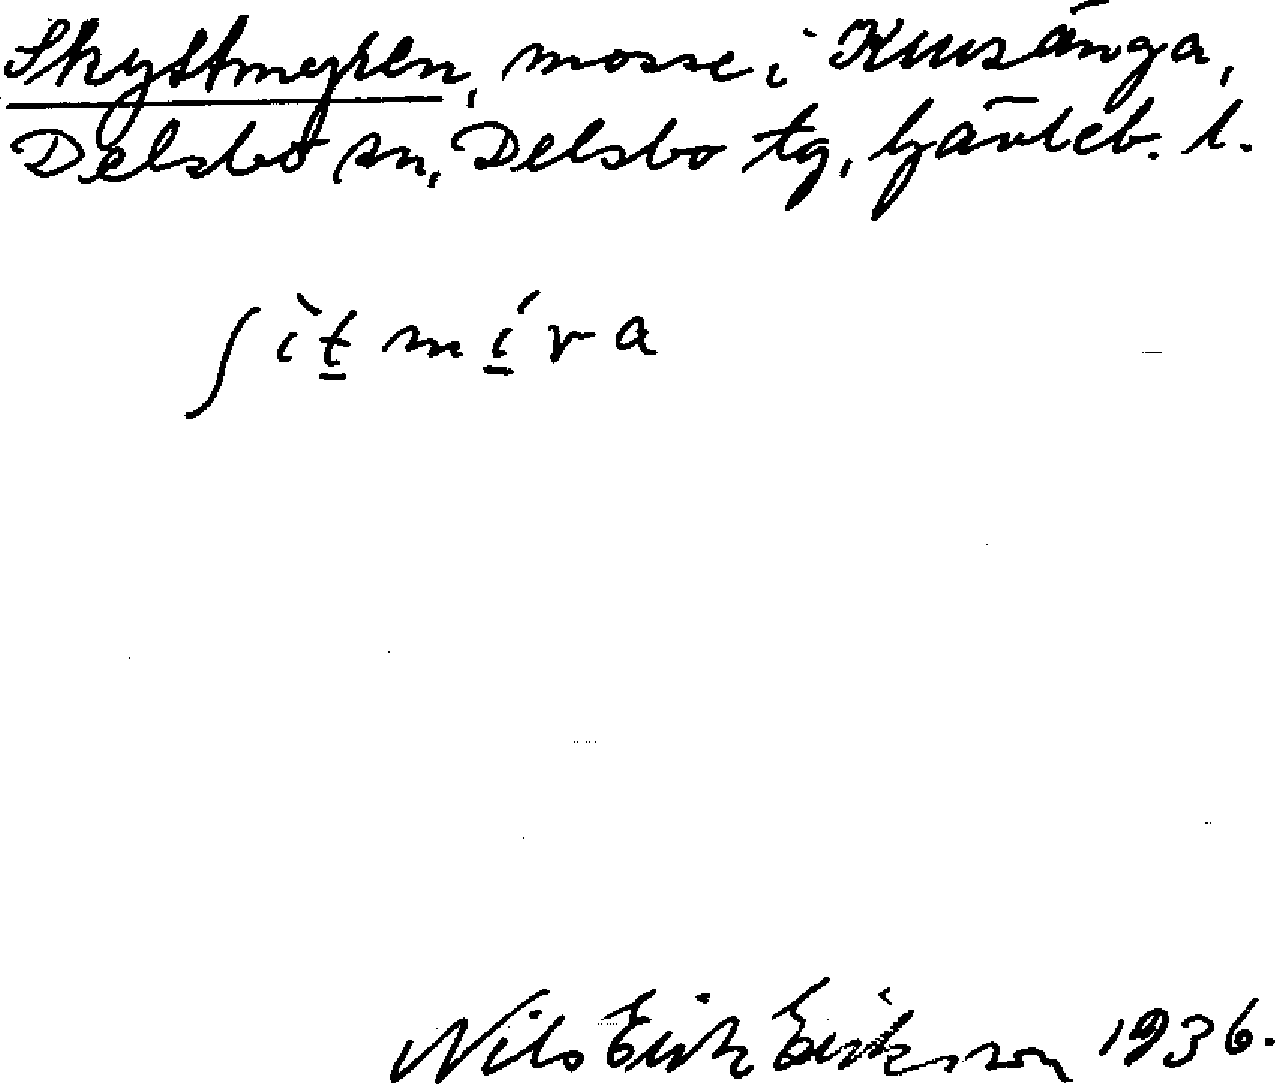 Skyttmyren, mosse i
Delsbo sn, Delsbo tg, Gävleb. l.
ʃìt̲ mí̲ra
Nils Erik Eriksson 1936.